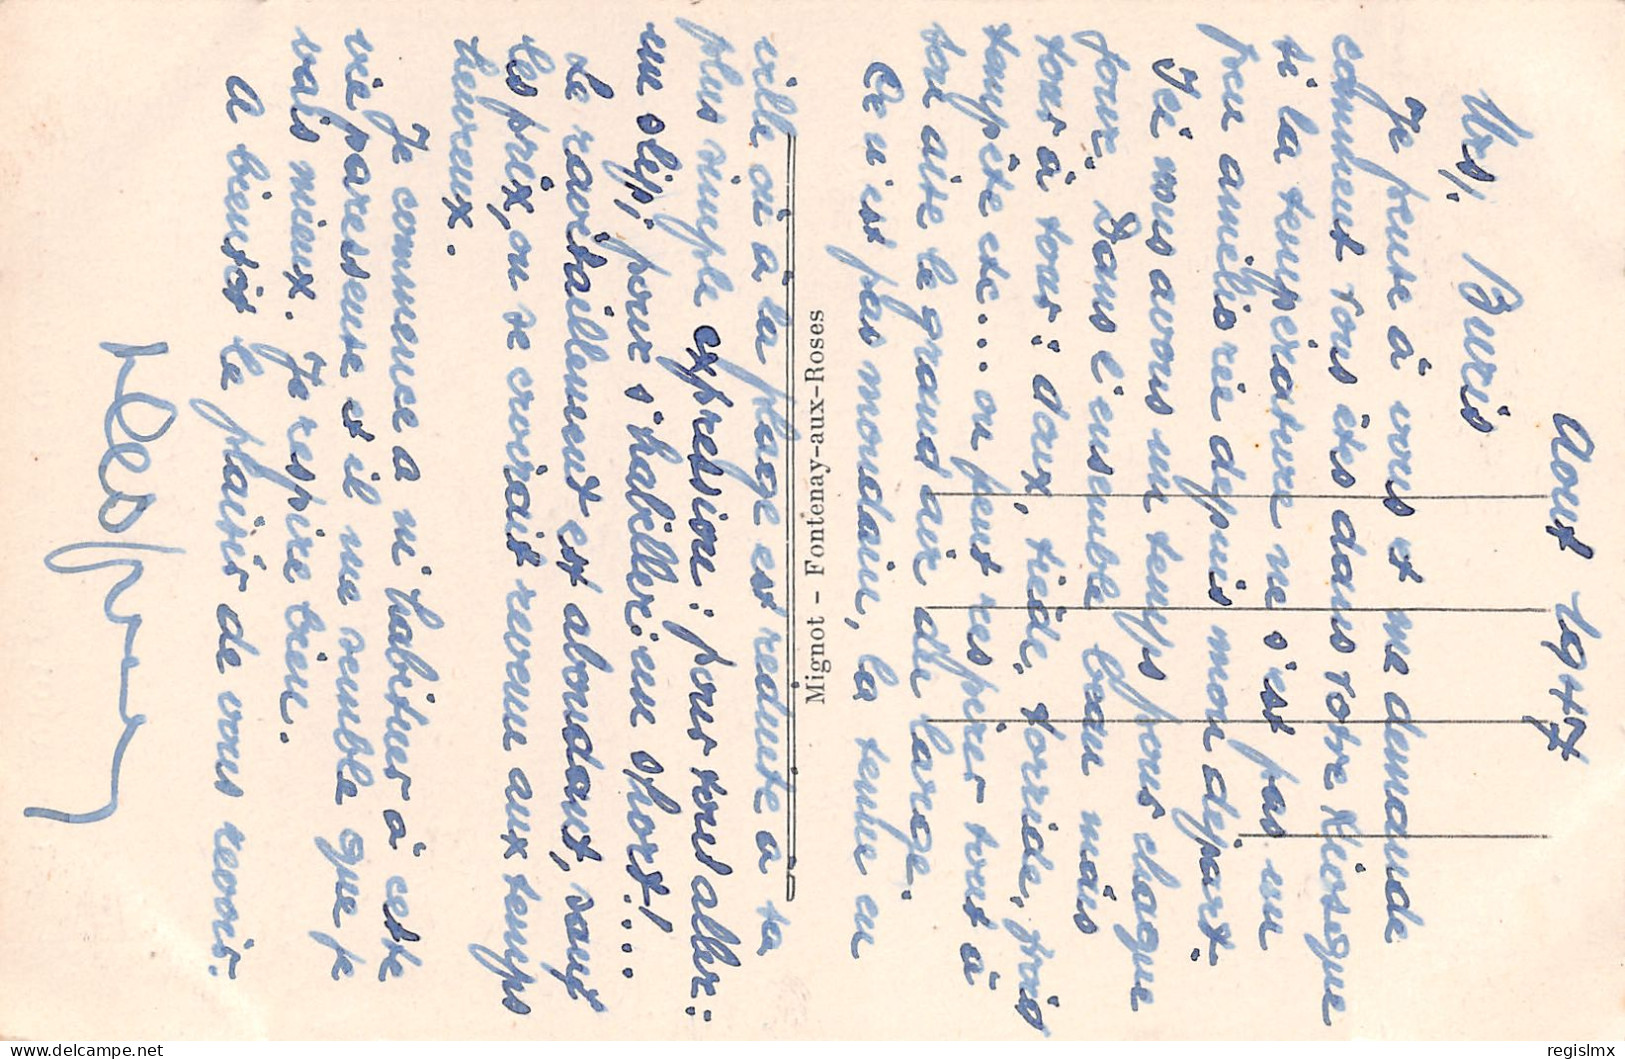 Aout 1947
Mrs/. Buris
Je pense à vous et me demande
comment vous êtes dans votre Kiosque
si la température ne s'est pas un
peu améliorée depuis mon départ.
Ici nous avons un temps pour chaque
jour. Dans l'ensemble beau mais
tour à tour: doux, tiède, torride, frais
tempête etc... on peut respirer tout à
son aise le grand air du large.
Ce n'est pas mondain, la tenue en
ville où à la plage est réduite à sa
plus simple expression: pour tout aller:
un slip; pour s'habiller: un short!...
Le ravitaillement est abondant, sauf
les prix, on se croirait revenu aux temps
heureux.
Je commence a m'habituer à cette
vie paresseuse et il me semble que je
vais mieux. Je respire bien.
A bientôt le plaisir de vous revoir.
Mignot - Fontenay-aux-Roses
delcampe.net
regislmx